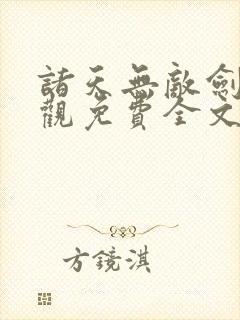 諸天無敵劍
觀免費全文
方鏡淇